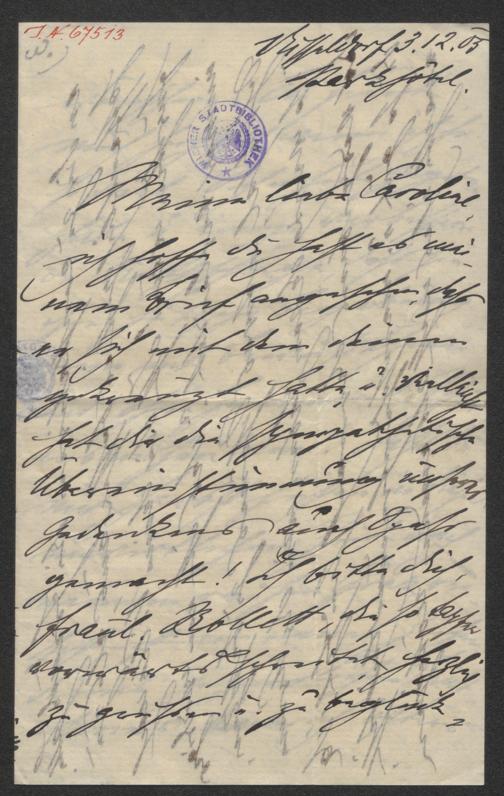 I.N. 67513
Düsseldorf, 3.12.03
Parkhôtel.
WIENER STADTBIBLIOTHEK
Meine liebe Caroline,
ich hoffe du hast es mei-
nem Brief angesehen, dass
er sich mit dem deinen
gekreuzt hatte, u. vielleicht
hat dir die sympathische
Übereinstimmung unseres
Gedenkens auch Spaß
gemacht! Ich bitte dich,
Fräul. Bollett, die so
vorwärts schreitet, herzlich
zu grüßen u. zu beglück-